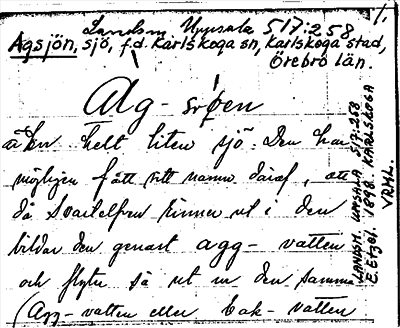 Landsm Uppsala 517:258
Agsjön, sjö, f.d. Karlskoga sn, Karlskoga stad,
Örebro län.
Ag-
är en helt liten sjö. Den har
möjligen fått sitt namn däraf, att
då Svartelfven rinner ut i den
bildar den genast agg-vatten
och flyter så ut ur den samma
(Agg-vatten eller bak-vatten
LANDSM. UPSALA 517:258
E. Etzel. 1898. KARLSKOGA
VRML.